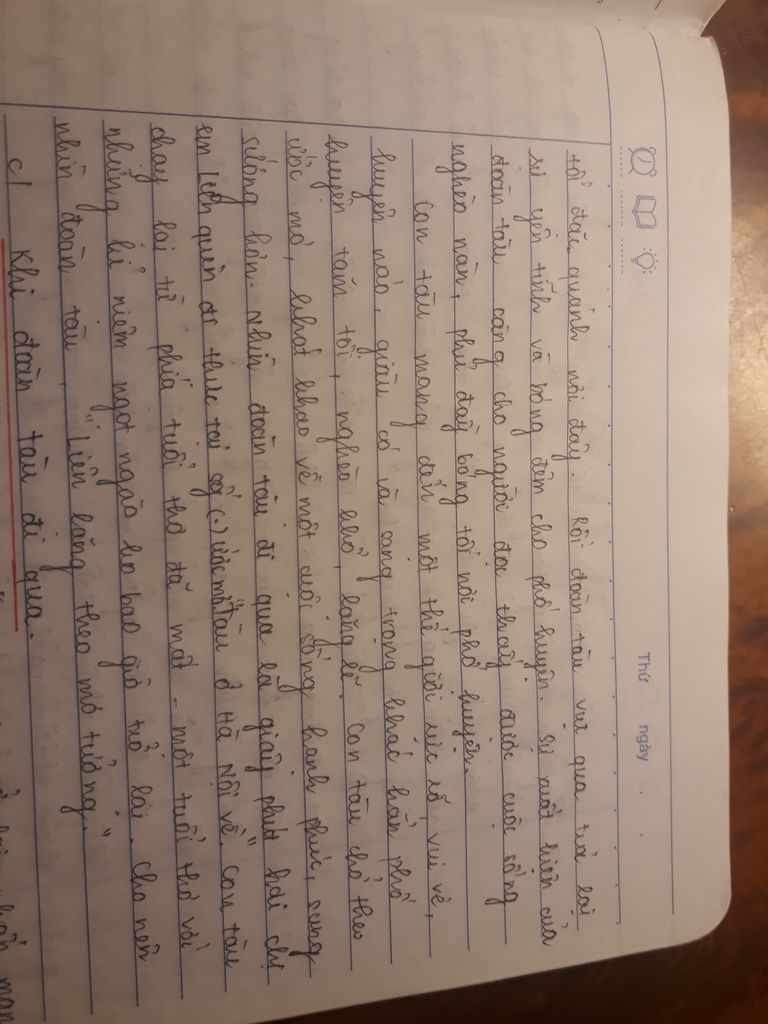 Thứ ngày
tối đặc quánh nơi đây. Rồi đoàn tàu vụt qua trả lại
sự yên tĩnh và bóng đêm cho phố huyện. Sự xuất hiện của
đoàn tàu càng cho người đọc thấy được cuộc sống
nghèo nàn, phủ đầy bóng tối nơi phố huyện.
Con tàu mang đến một thế giới rực rỡ, vui vẻ,
huyên náo, giàu có và sang trọng khác hẳn phố
huyện tăm tối, nghèo khổ, lặng lẽ. Con tàu chở theo
ước mơ, khát khao về một cuộc sống hạnh phúc, sung
sướng hơn. Nhìn đoàn tàu đi qua là giây phút hai chị
em Liên quên đi thực tại sống (-) ước mơ "Tàu ở Hà Nội về". Con tàu
chạy lại từ phía tuổi thơ đã mất - một tuổi thơ với
những kỉ niệm ngọt ngào ko bao giờ trở lại. Cho nên
nhìn đoàn tàu, "Liên lặng theo mơ tưởng."
c/ Khi đoàn tàu đi qua.